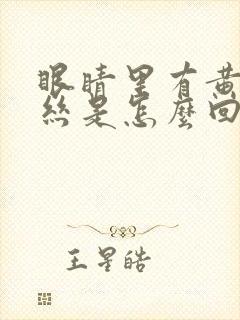 眼睛里有黄
丝是怎麽回
王星皓